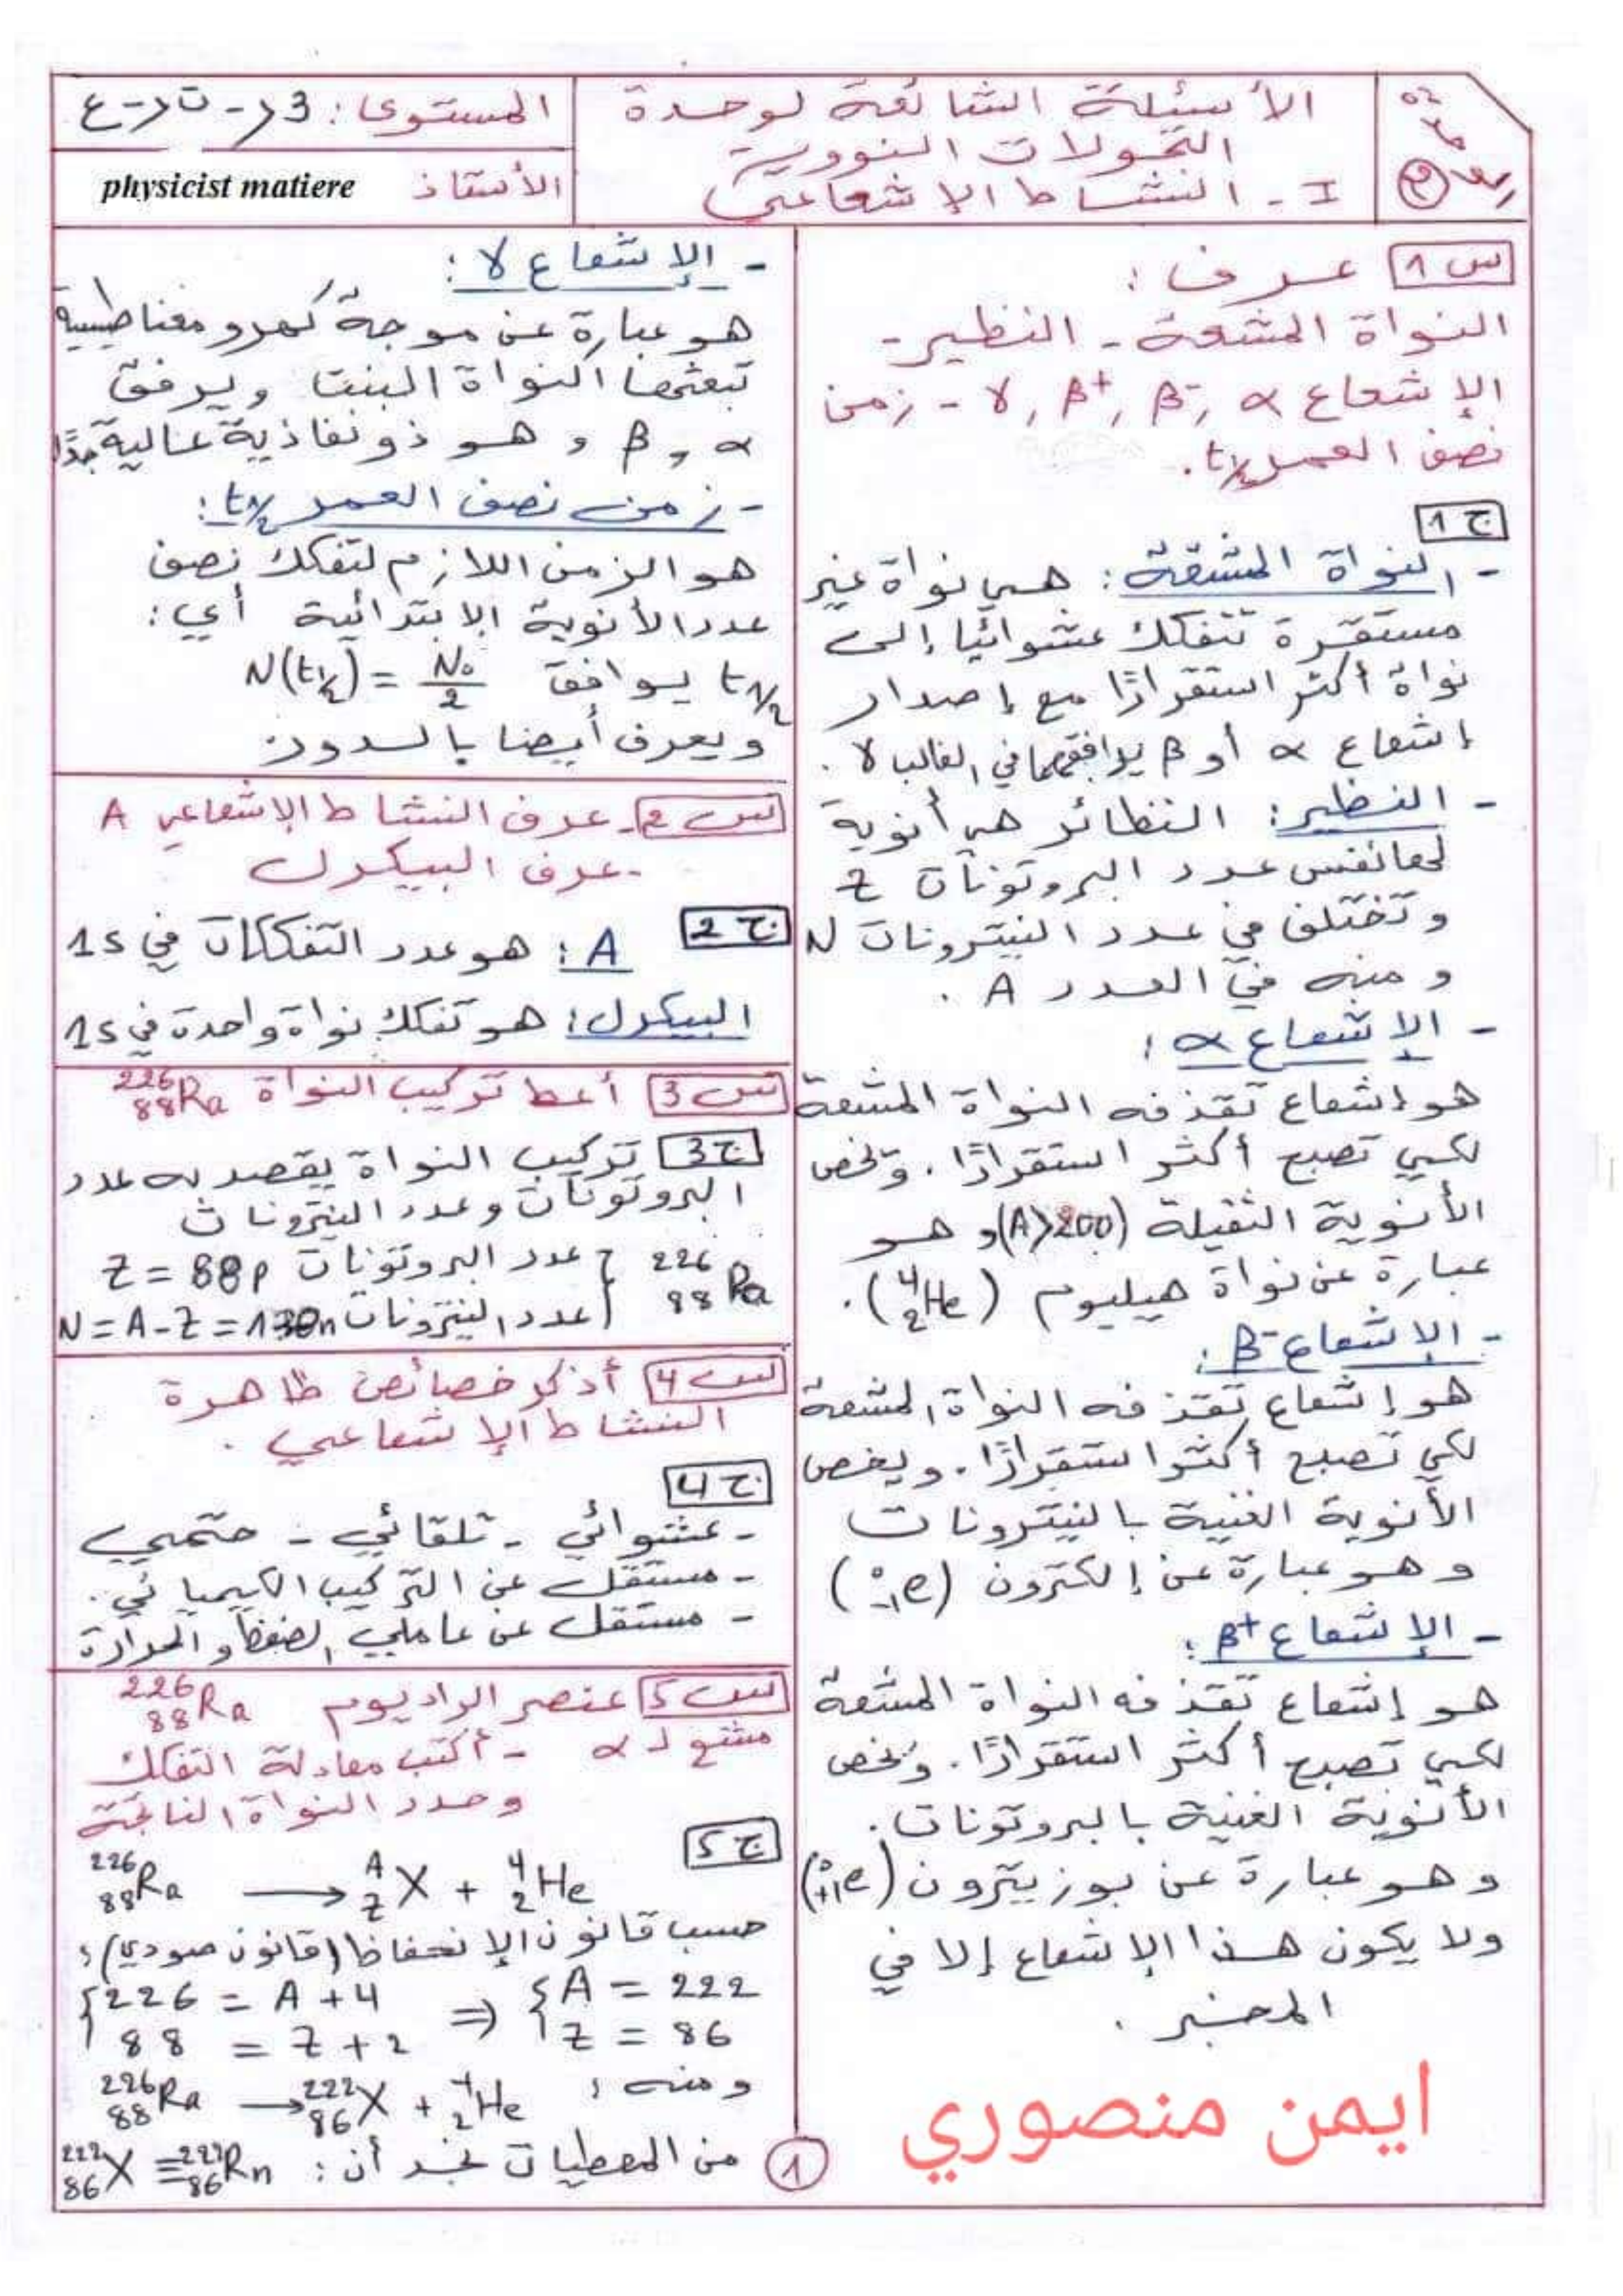 الأسئلة الشائعة لوحدة
التحولات النووية
I - النشاط الإشعاعي
المستوى: 3 - ت - ع
الأستاذ physicist matiere
س1 عرف :
النواة المشعة - النظير -
الإشعاع α ,β⁻ ,β⁺ ,γ - زمن
نصف العمر t1/2 .
ج1
- النواة المشعة : هي نواة غير
مستقرة تتفكك عشوائيا إلى
نواة أكثر استقرارًا مع إصدار
إشعاع α أو β يرافقهما في الغالب γ .
- النظير : النظائر هي أنوية
لها نفس عدد البروتونات Z
وتختلف في عدد النيترونات N
ومنه في العدد A .
- الإشعاع α :
هو إشعاع تقذفه النواة المشعة
لكي تصبح أكثر استقرارًا . وتخص
الأنوية الثقيلة (A>200) وهو
عبارة عن نواة هيليوم (⁴₂He) .
- الإشعاع β⁻ :
هو إشعاع تقذفه النواة المشعة
لكي تصبح أكثر استقرارًا . ويخص
الأنوية الغنية بالنيترونات
وهو عبارة عن إلكترون (⁰₋₁e)
- الإشعاع β⁺ :
هو إشعاع تقذفه النواة المشعة
لكي تصبح أكثر استقرارًا . وتخص
الأنوية الغنية بالبروتونات .
وهو عبارة عن بوزيترون (⁰₊₁e)
ولا يكون هذا الإشعاع إلا في
المخبر .
ايمن منصوري
- الإشعاع γ :
هو عبارة عن موجة كهرومغناطيسية
تبعثها النواة البنت ويرفق
α و β و هو ذو نفاذية عالية جدًا
- زمن نصف العمر t1/2 :
هو الزمن اللازم لتفكك نصف
عدد الأنوية الابتدائية أي :
t1/2 يوافق N(t1/2) = N₀/2
ويعرف أيضا بالدور
س2 - عرف النشاط الإشعاعي A
- عرف البيكرل
ج2 A : هو عدد التفككات في 1s
البيكرل : هو تفكك نواة واحدة في 1s
س3 أعط تركيب النواة ²²⁶₈₈Ra
ج3 تركيب النواة يقصد به عدد
البروتونات وعدد النيترونات
²²⁶₈₈Ra { عدد البروتونات Z = 88p
عدد النيترونات N = A - Z = 138n
س4 أذكر خصائص ظاهرة
النشاط الإشعاعي .
ج4
- عشوائي - تلقائي - حتمي
- مستقل عن التركيب الكيميائي .
- مستقل عن عاملي الضغط و الحرارة
س5 عنصر الراديوم ²²⁶₈₈Ra
مشع لـ α - أكتب معادلة التفكك
وحدد النواة الناتجة
ج5
²²⁶₈₈Ra ⟶ ᴬ_Z X + ⁴₂He
حسب قانون الإنحفاظ (قانون صودي) :
{226 = A + 4 ⇒ {A = 222
88 = Z + 2 Z = 86
ومنه :
²²⁶₈₈Ra ⟶ ²²²₈₆X + ⁴₂He
من المعطيات نجد أن : ²²²₈₆X ≡ ²²²₈₆Rn
1